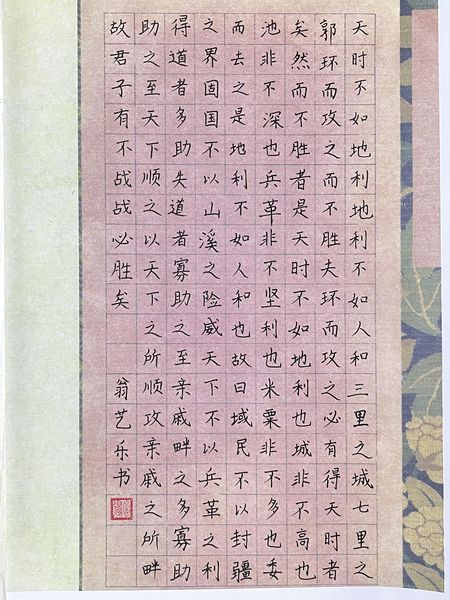 天时不如地利地利不如人和三里之城七里之
郭环而攻之而不胜夫环而攻之必有得天时者
矣然而不胜者是天时不如地利也城非不高也
池非不深也兵革非不坚利也米粟非不多也委
而去之是地利不如人和也故曰域民不以封疆
之界固国不以山溪之险威天下不以兵革之利
得道者多助失道者寡助之至亲戚畔之多寡助
助之至天下顺之以天下之所顺攻亲戚之所畔
故君子有不战战必胜矣 翁艺乐书